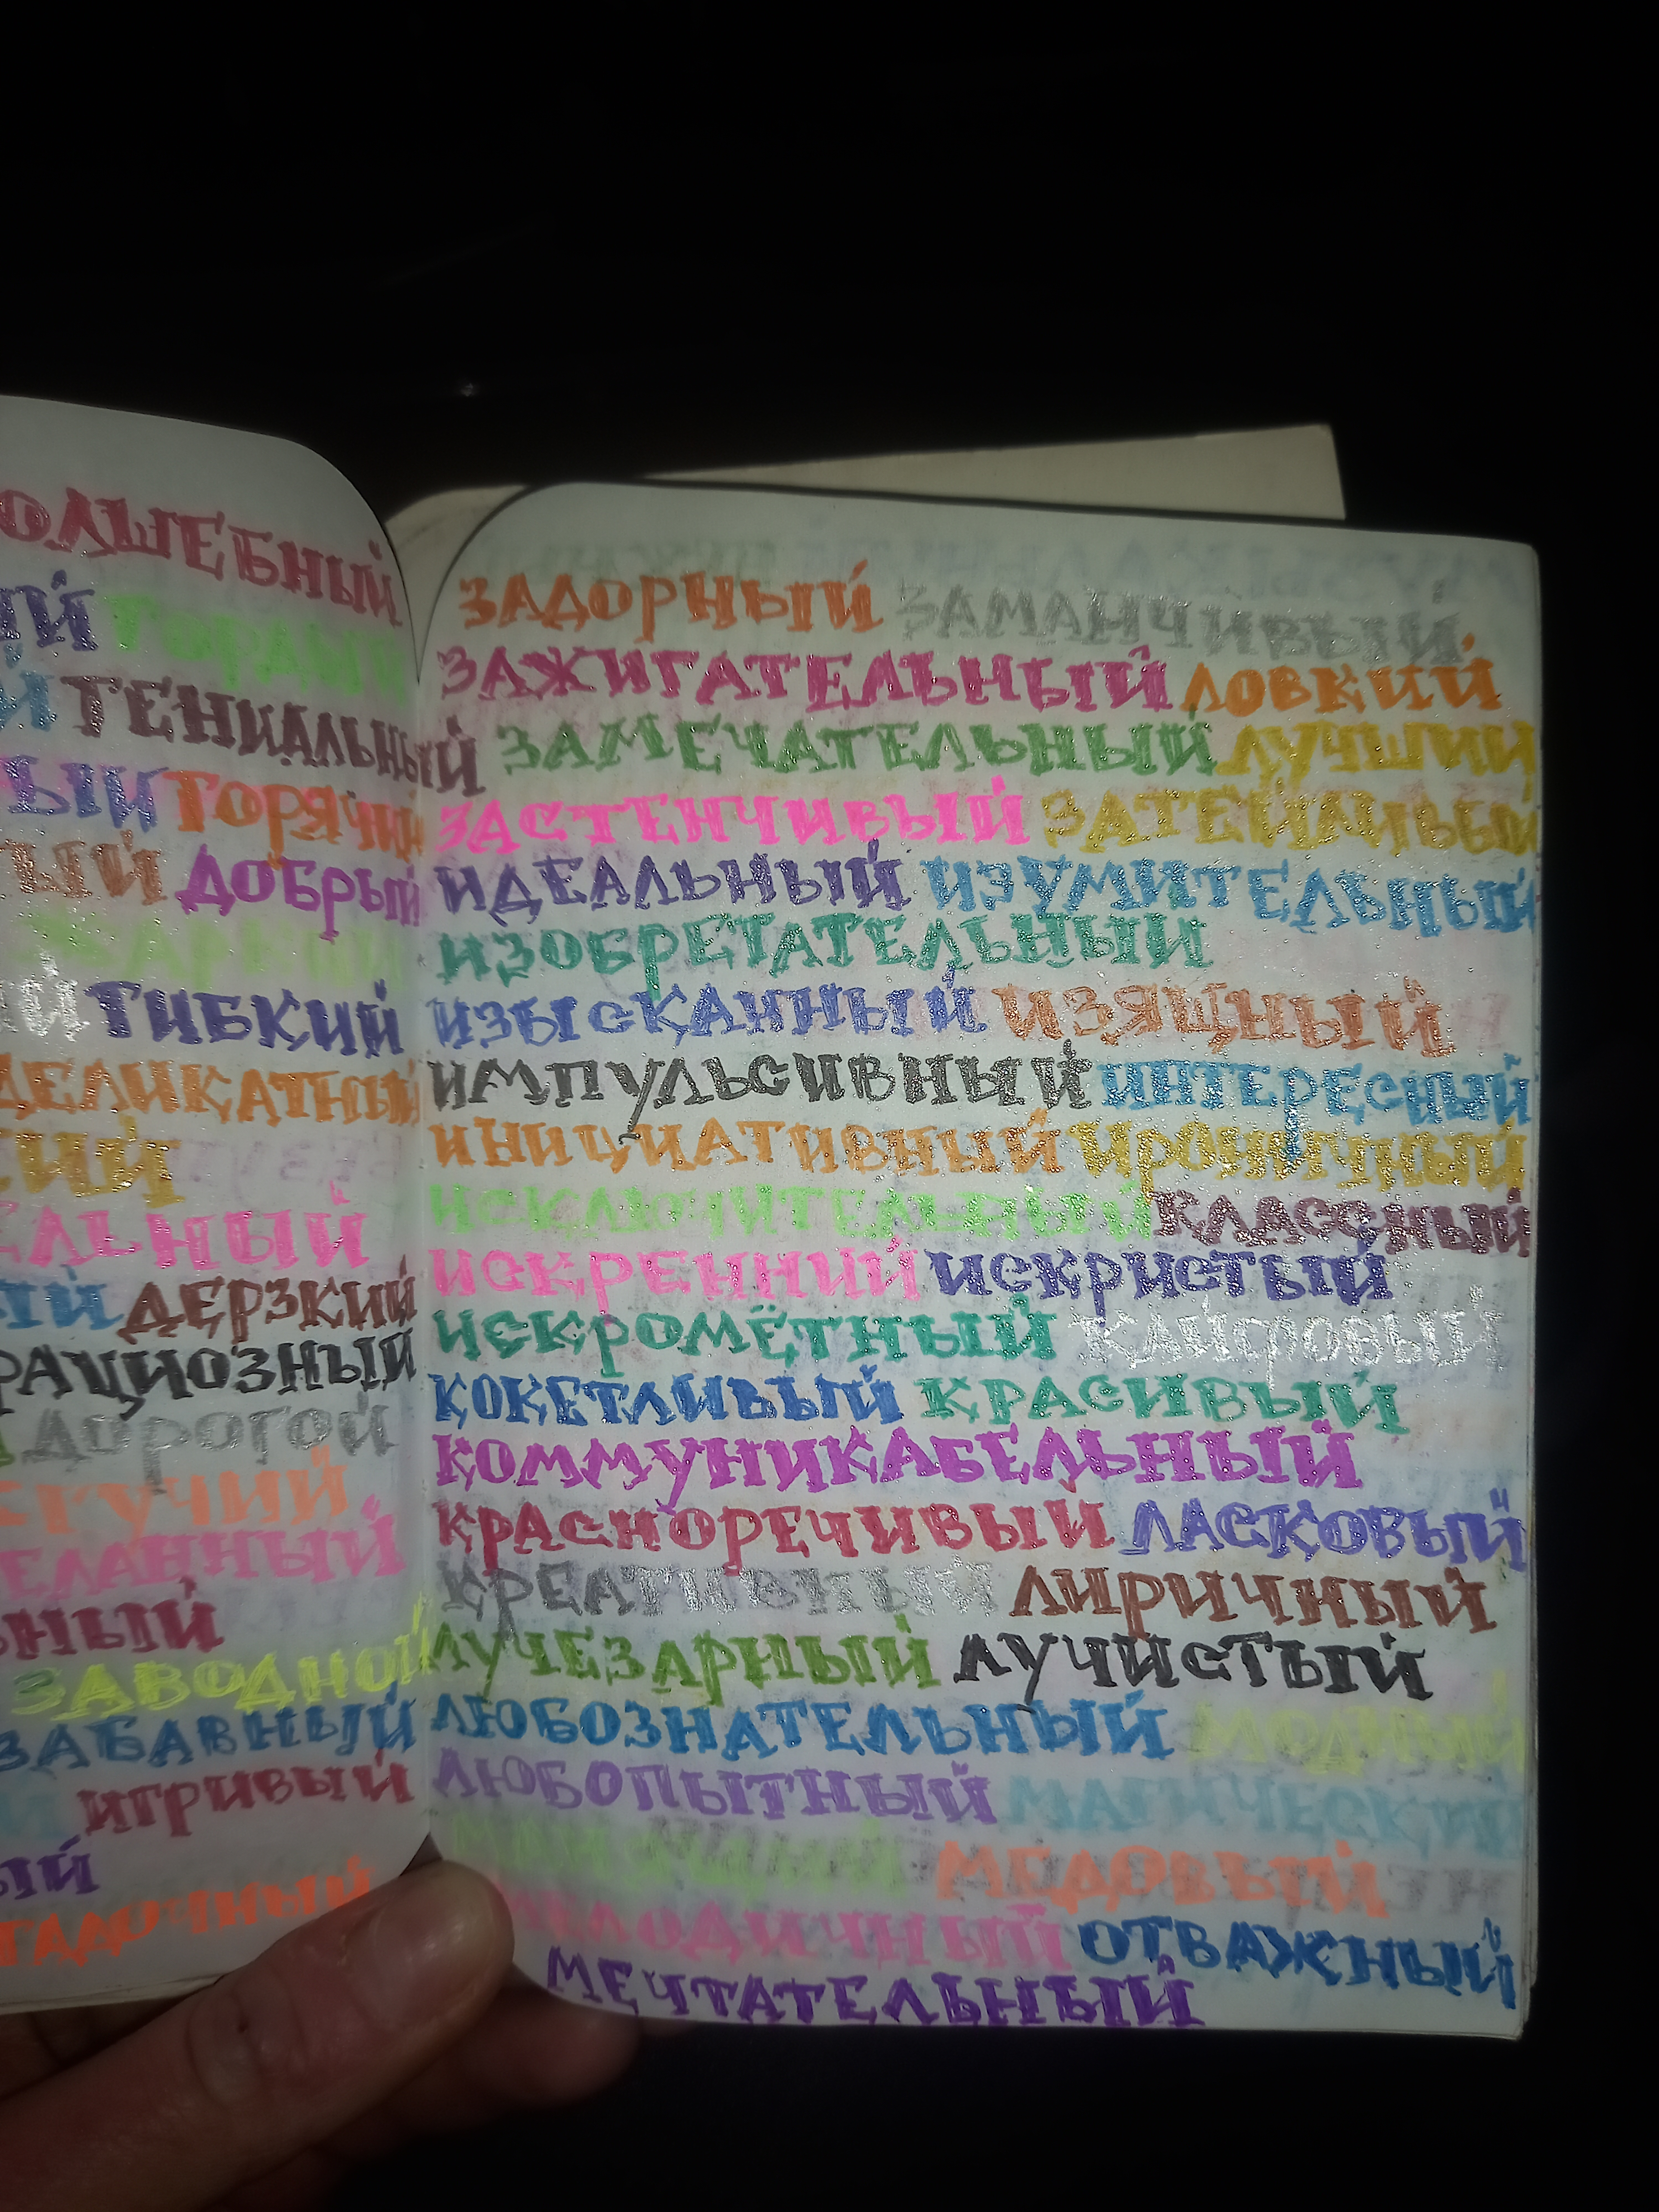 ГОРДЫЙ
ГЕНИАЛЬНЫЙ
ГОРЯЧИЙ
ДОБРЫЙ
ГИБКИЙ
ДЕЛИКАТНЫЙ
ДЕРЗКИЙ
ДОРОГОЙ
ЗАВОДНОЙ
ЗАБАВНЫЙ
ИГРИВЫЙ
ЗАДОРНЫЙ ЗАМАНЧИВЫЙ
ЗАЖИГАТЕЛЬНЫЙ ЛОВКИЙ
ЗАМЕЧАТЕЛЬНЫЙ ЛУЧШИЙ
ЗАСТЕНЧИВЫЙ ЗАТЕЙЛИВЫЙ
ИДЕАЛЬНЫЙ ИЗУМИТЕЛЬНЫЙ
ИЗОБРЕТАТЕЛЬНЫЙ
ИЗЫСКАННЫЙ ИЗЯЩНЫЙ
ИМПУЛЬСИВНЫЙ ИНТЕРЕСНЫЙ
ИНИЦИАТИВНЫЙ ИРОНИЧНЫЙ
ИСКЛЮЧИТЕЛЬНЫЙ КЛАССНЫЙ
ИСКРЕННИЙ ИСКРИСТЫЙ
ИСКРОМЁТНЫЙ КАЙФОВЫЙ
КОКЕТЛИВЫЙ КРАСИВЫЙ
КОММУНИКАБЕЛЬНЫЙ
КРАСНОРЕЧИВЫЙ ЛАСКОВЫЙ
КРЕАТИВНЫЙ ЛИРИЧНЫЙ
ЛУЧЕЗАРНЫЙ ЛУЧИСТЫЙ
ЛЮБОЗНАТЕЛЬНЫЙ МОДНЫЙ
ЛЮБОПЫТНЫЙ МАГИЧЕСКИЙ
МЕДОВЫЙ
МЕЛОДИЧНЫЙ ОТВАЖНЫЙ
МЕЧТАТЕЛЬНЫЙ